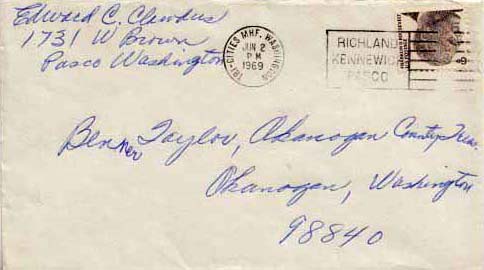 Edward C. Clawdus
1731 W Brown
Pasco Washington
TRI-CITIES MHF, WASHINGTON
JUN 2
PM
1969
RICHLAND
KENNEWICK
PASCO
Benner Taylor, Okanogan County Treas.
Okanogan, Washington
98840